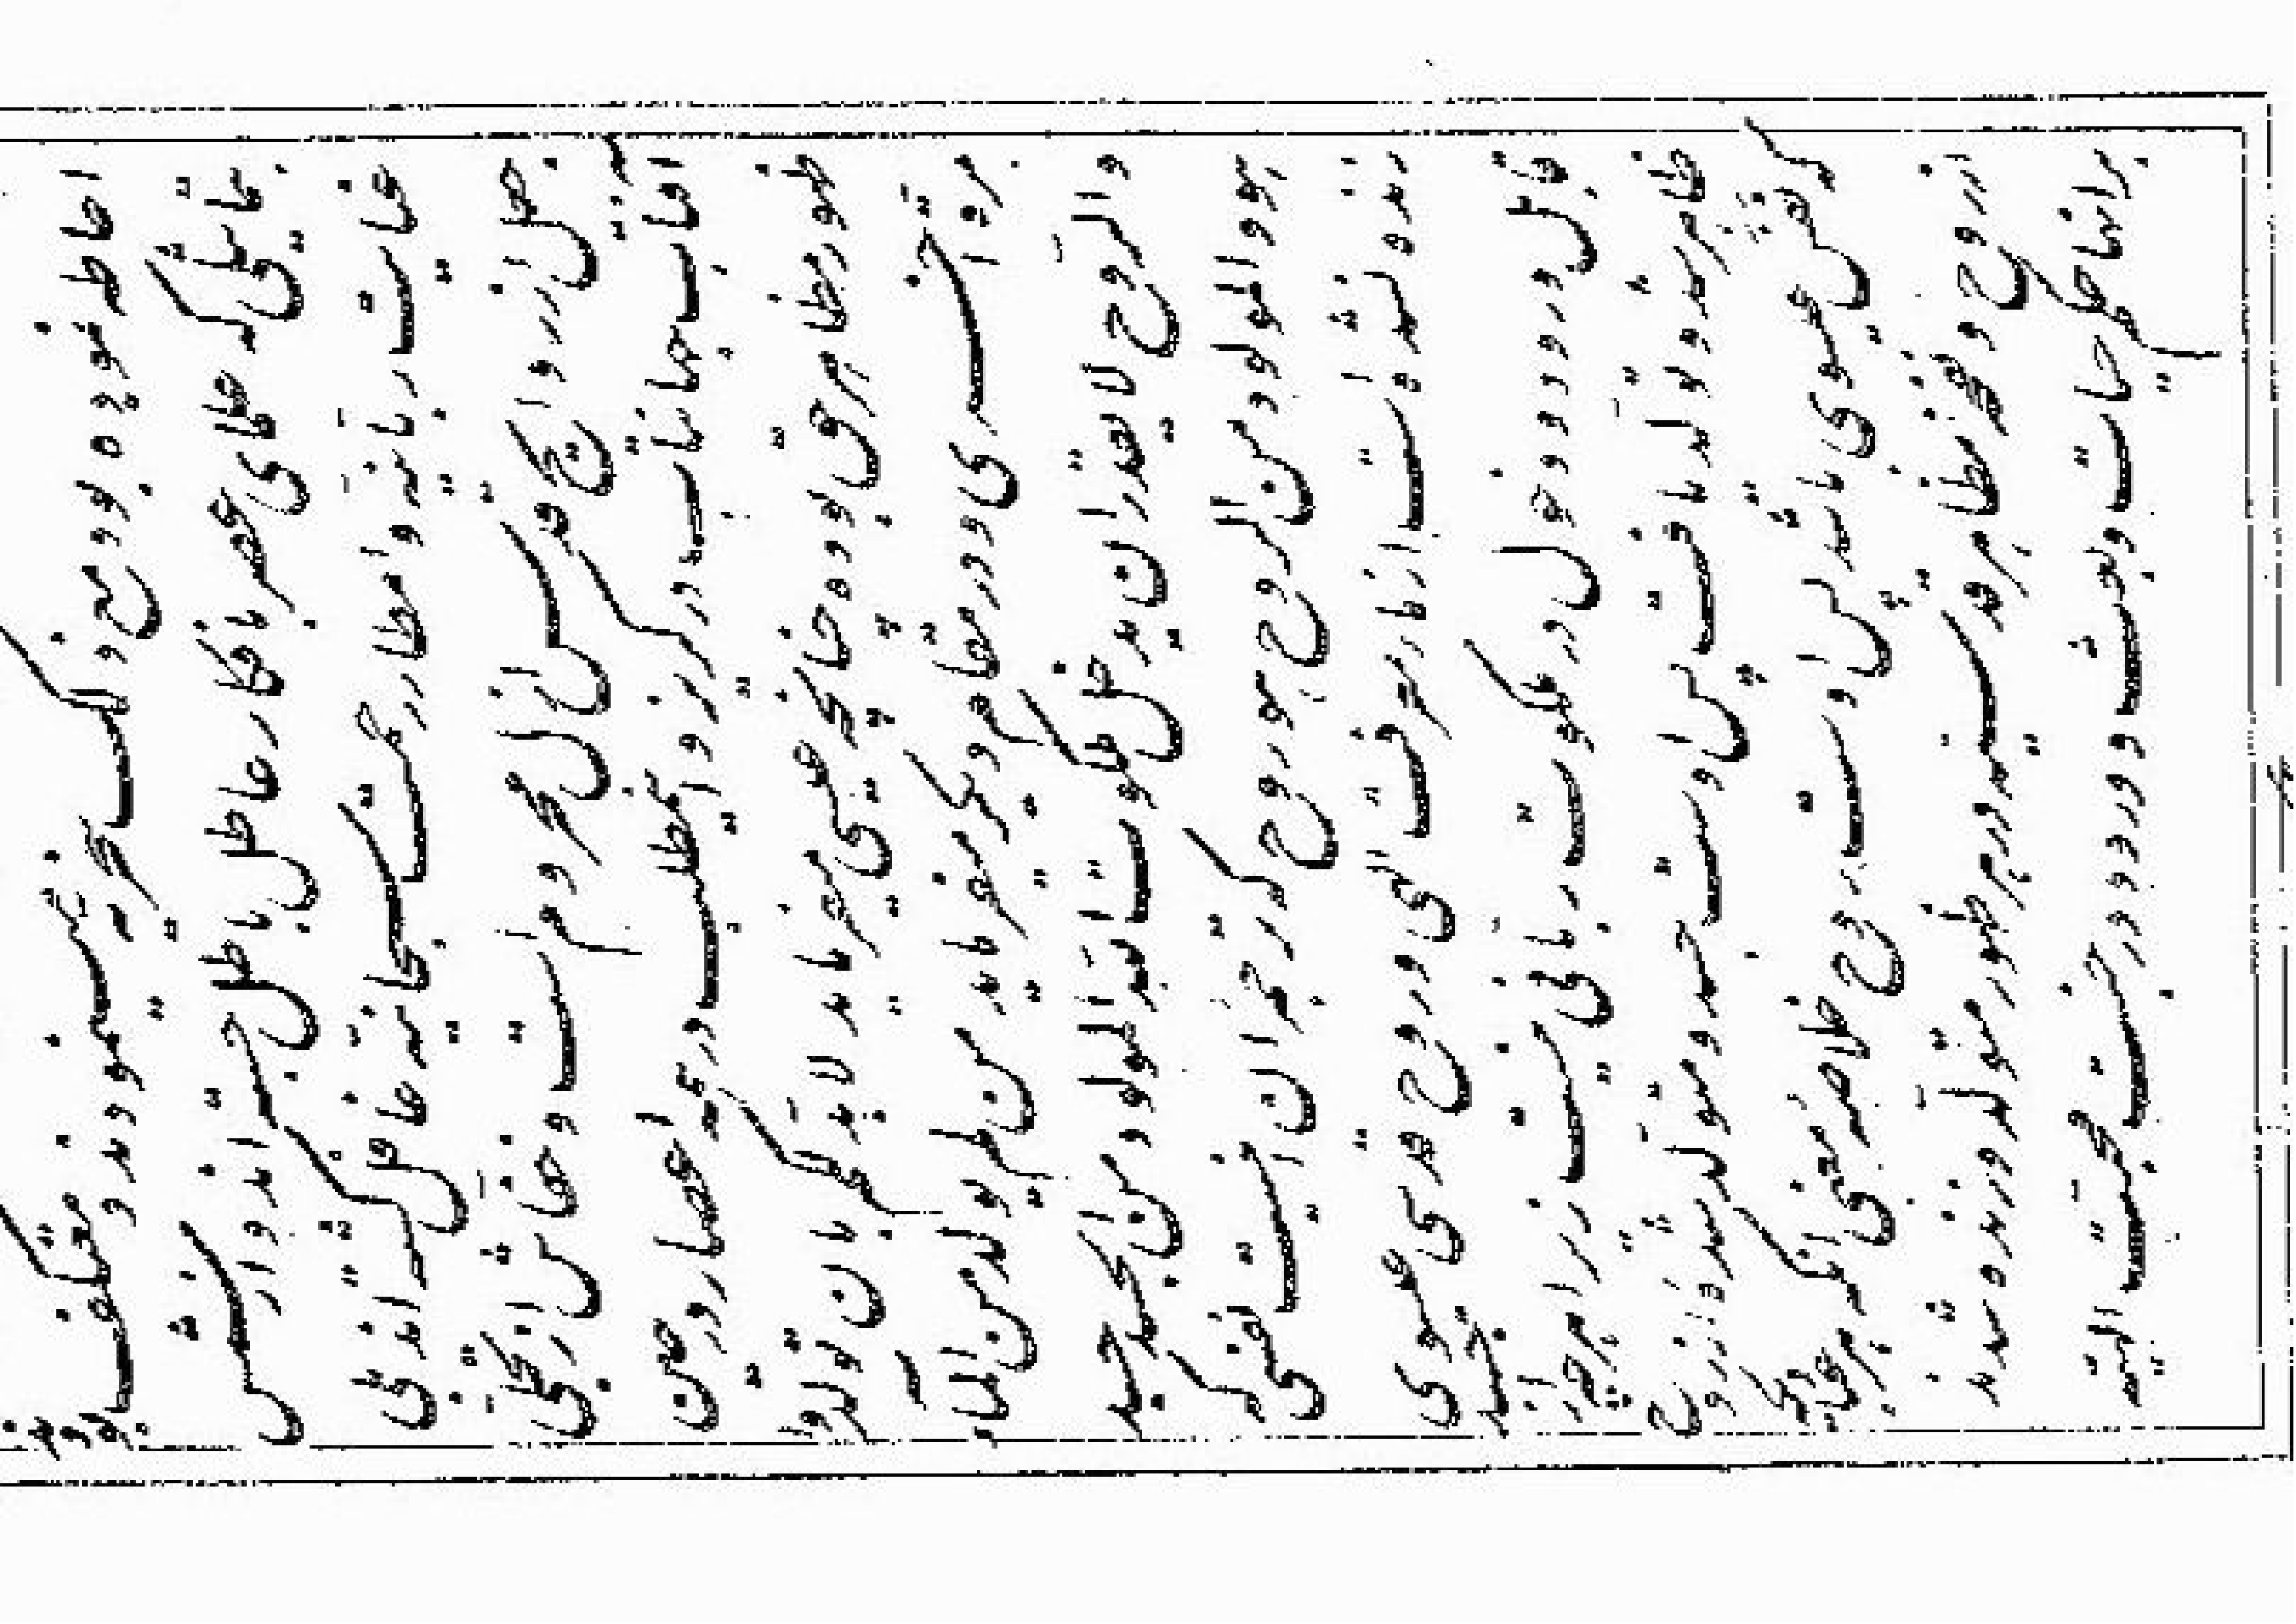 احاطه نموده بود و مع ذلک سخریه مینمودند و معتکف بودند
بتماثیلی که علمای عصر بافکار عاطل باطل جسته اند و از شمس
عنایت ربانیّه و امطار رحمت سبحانیّه غافل گشته اند بلی
جعل از روائح قدس ازل محروم است و خفّاش از تجلّی
آفتاب جهانتاب در گریز و این مطلب در همه اعصار در حین
ظهور مظاهر حق بوده چنانچه عیسی میفرماید لابدّ لکم بان تولدوا
مرّة اخری و در مقام دیگر میفرماید من لم یولد من الماء
و الرّوح لا یقدر ان یدخل ملکوت اللّه المولود من الجسد جسد
هو و المولود من الروح هو روح که ترجمه آن این است نفسی که
زنده نشده است از ماء معرفت الهی و روح قدسی عیسوی
قابل ورود و دخول در ملکوت ربّانی نیست زیرا هر چه از جسد
ظاهر شد و تولّد یافت پس اوست جسد و متولّد شده از روح
که نفس عیسوی باشد پس اوست روح خلاصه معنی آنکه هر عبادی که
از روح و نفخه مظاهر قدسیّه در هر ظهور متولّد و زنده شدند
بر انها حکم حیات و بعث و ورود در جنّت محبّت الهیّه